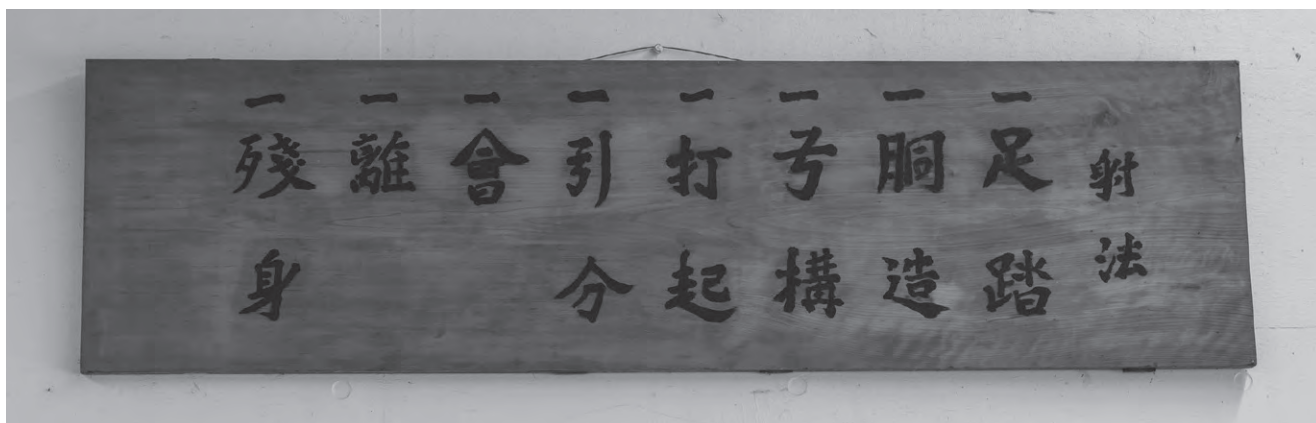 射法
一足踏
一胴造
一弓構
一打起
一引分
一會
一離
一殘身